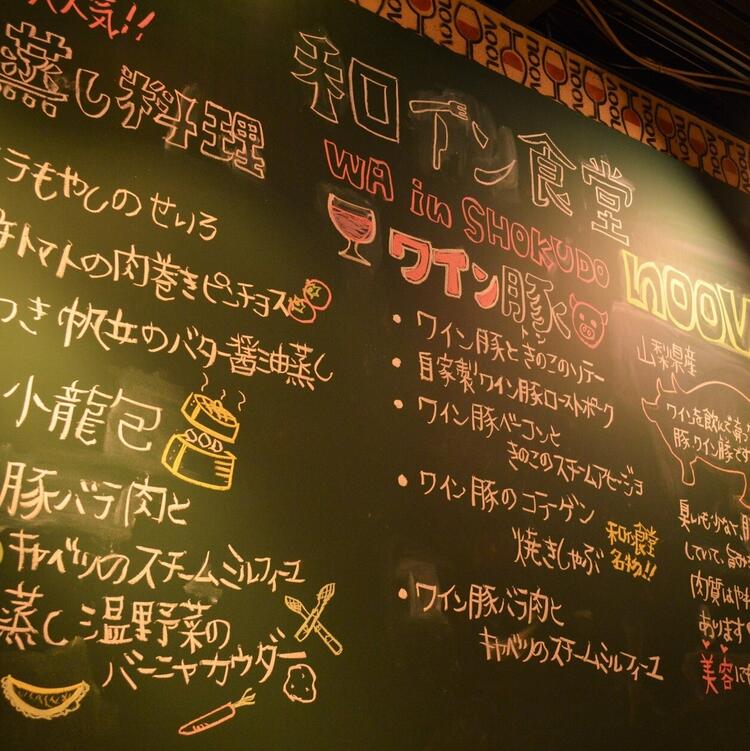 人気!!
蒸し料理
もやしのせいろ
トマトの肉巻きピンチョス
つき帆立のバター醤油蒸し
小龍包
豚バラ肉と
キャベツのスチームミルフィーユ
蒸し温野菜の
バーニャカウダー
和in食堂
WA in SHOKUDO
ワイン豚
トン
• ワイン豚ときのこのソテー
• 自家製ワイン豚ローストポーク
• ワイン豚ベーコンと
きのこのスチームアヒージョ
• ワイン豚のコラーゲン
焼きしゃぶ
和in食堂
名物!!
• ワイン豚バラ肉と
キャベツのスチームミルフィーユ
山梨県産
ワインを飲んで育っ
豚、ワイン豚です
臭いも少なく
していて、旨み
肉質はや
あります
美容にも